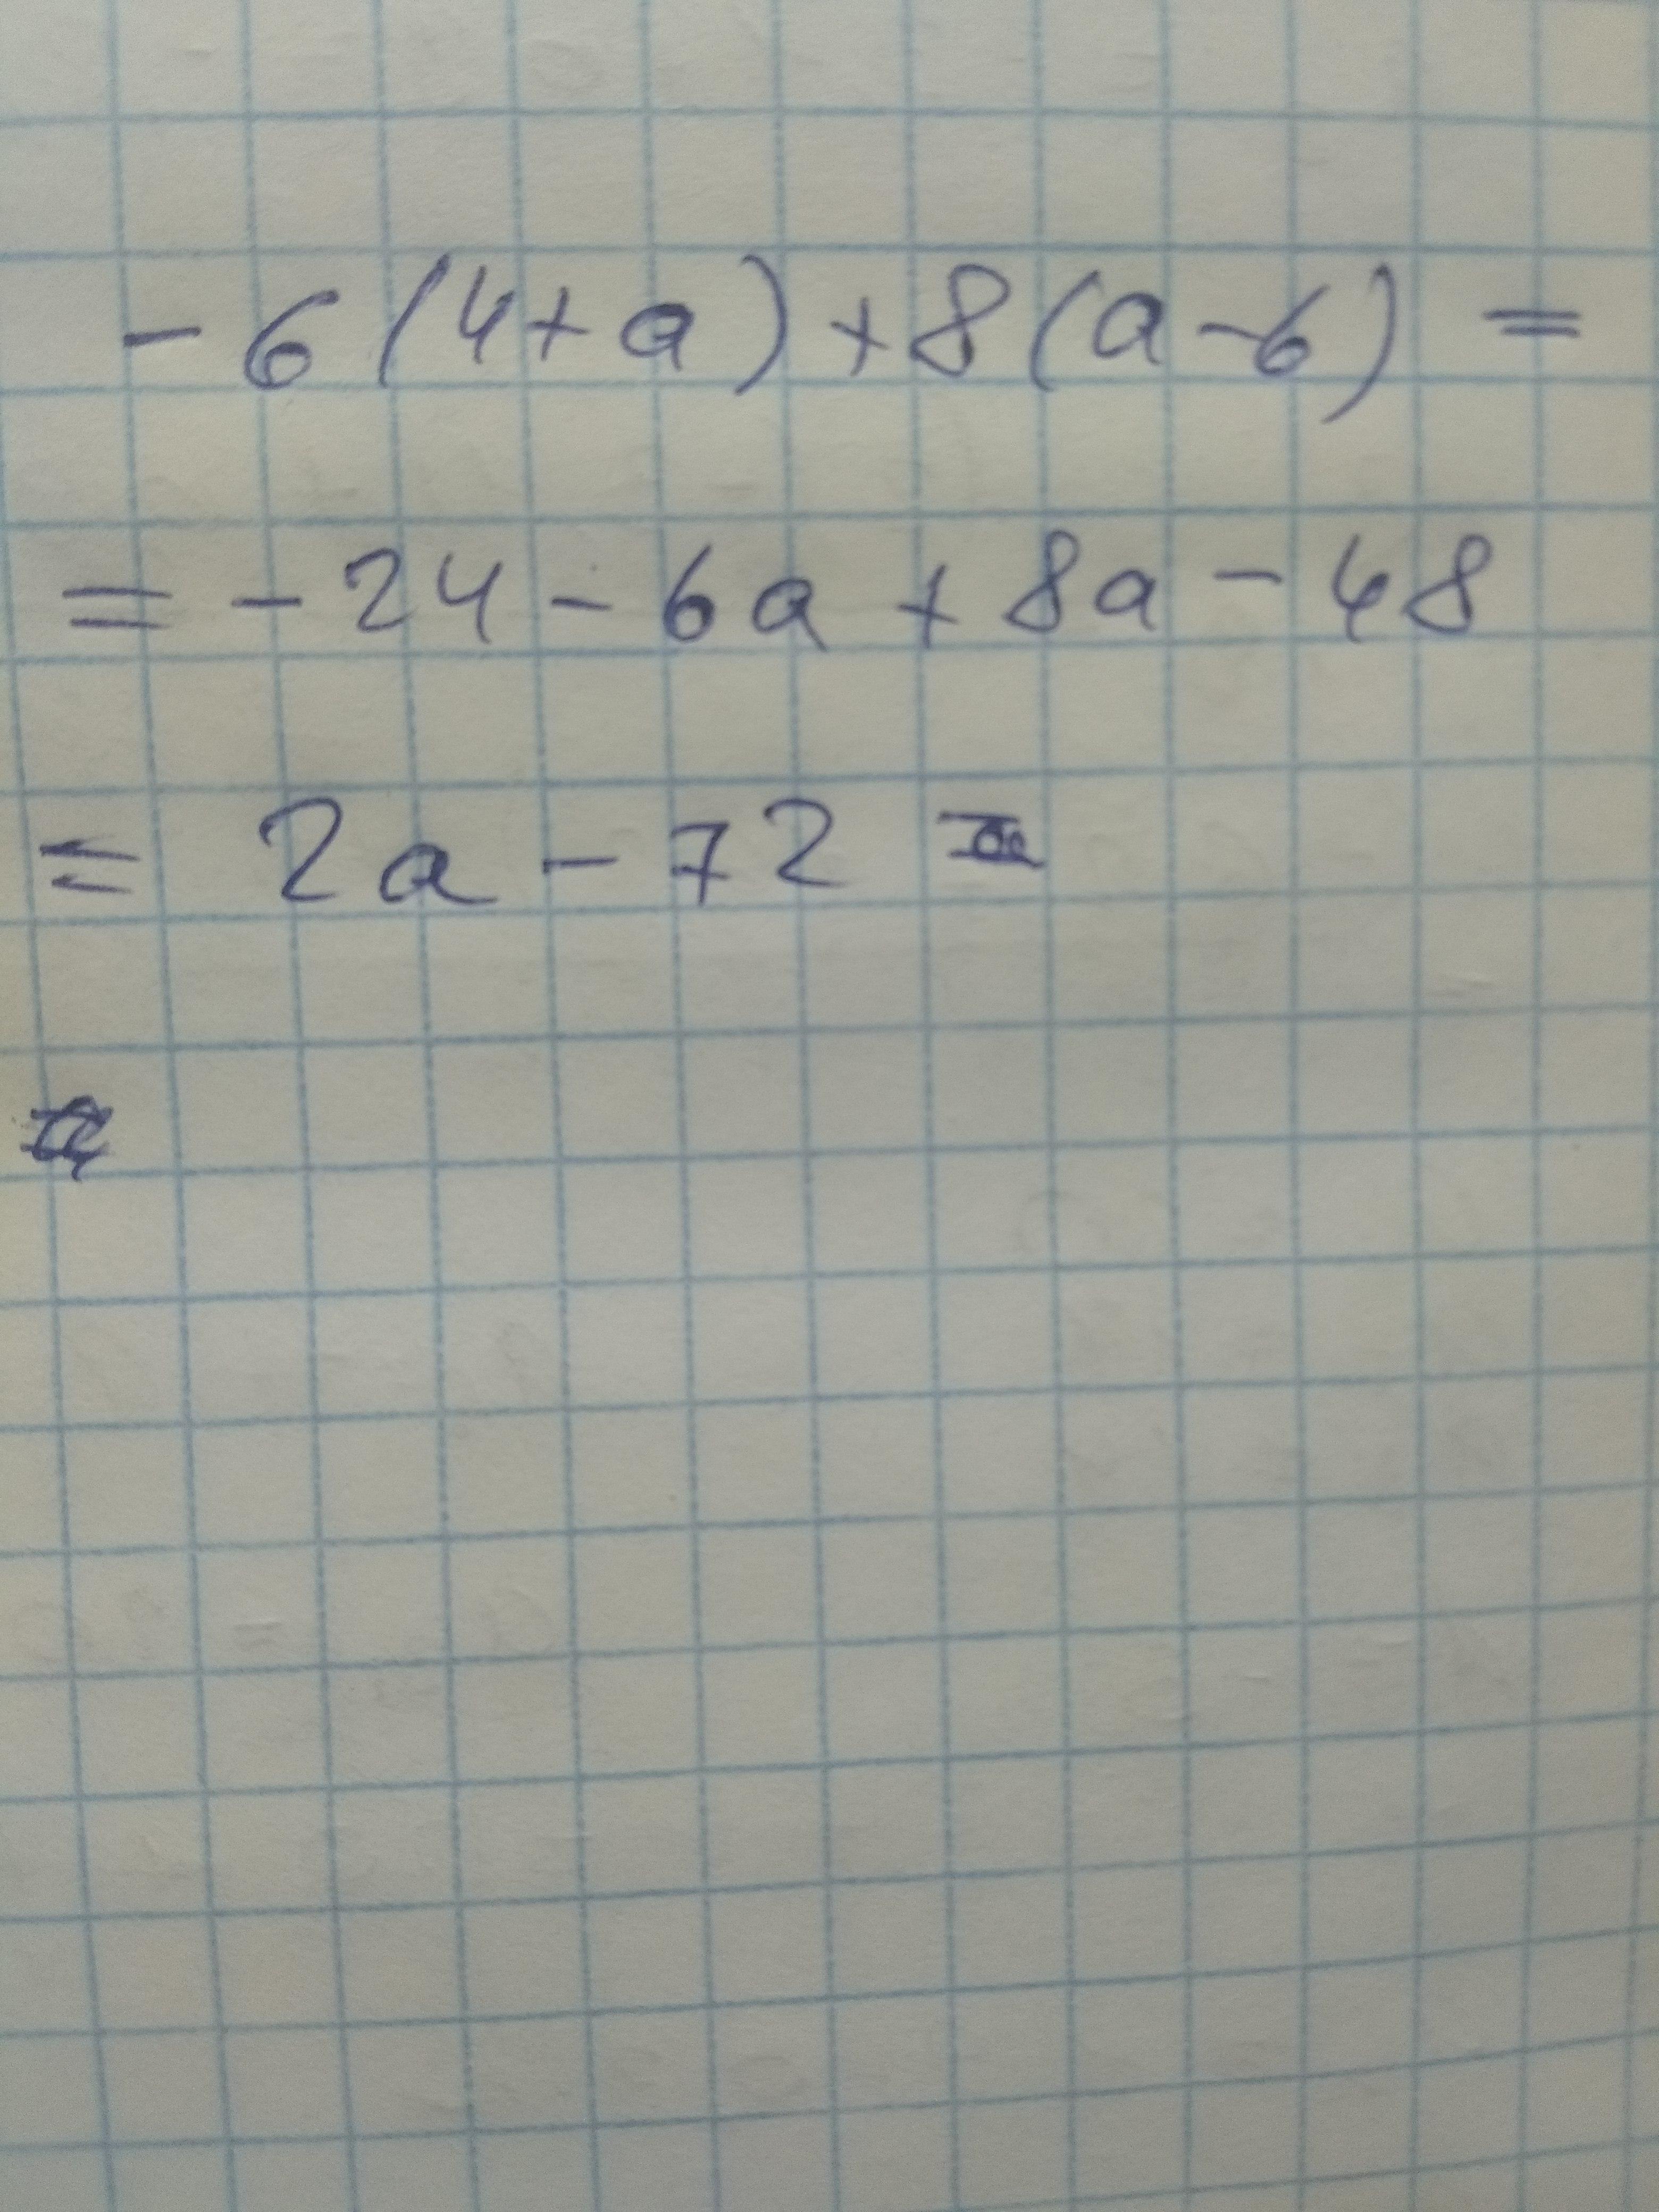 - 6 (4 + a) + 8 (a - 6) =
= - 24 - 6a + 8a - 48
= 2a - 72